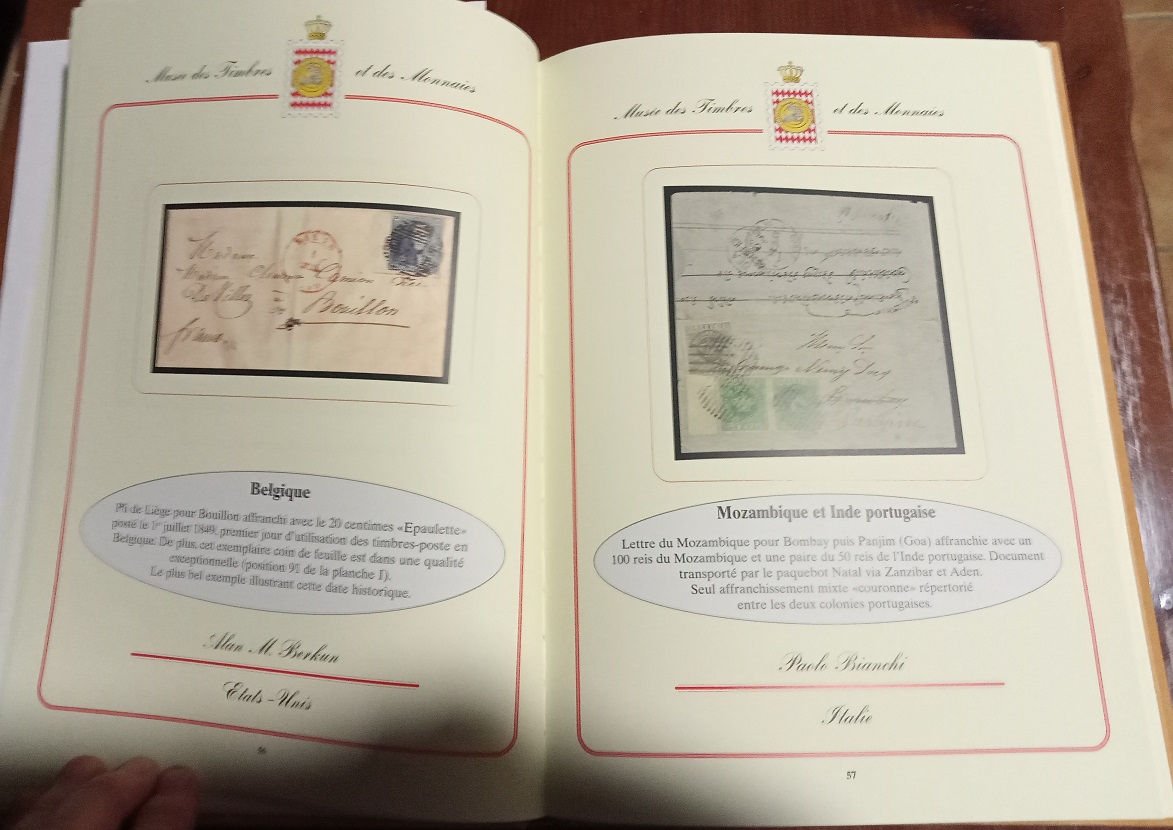 Musée des Timbres et des Monnaies
Madame
Bouillon
france
Belgique
Pli de Liège pour Bouillon affranchi avec le 20 centimes «Epaulette»
posté le 1er juillet 1849, premier jour d'utilisation des timbres-poste en
Belgique. De plus, cet exemplaire coin de feuille est dans une qualité
exceptionnelle (position 91 de la planche I).
Le plus bel exemple illustrant cette date historique.
Alan M. Berkun
Etats-Unis
56
Musée des Timbres et des Monnaies
Mozambique et Inde portugaise
Lettre du Mozambique pour Bombay puis Panjim (Goa) affranchie avec un
100 reis du Mozambique et une paire du 50 reis de l'Inde portugaise. Document
transporté par le paquebot Natal via Zanzibar et Aden.
Seul affranchissement mixte «couronne» répertorié
entre les deux colonies portugaises.
Paolo Bianchi
Italie
57